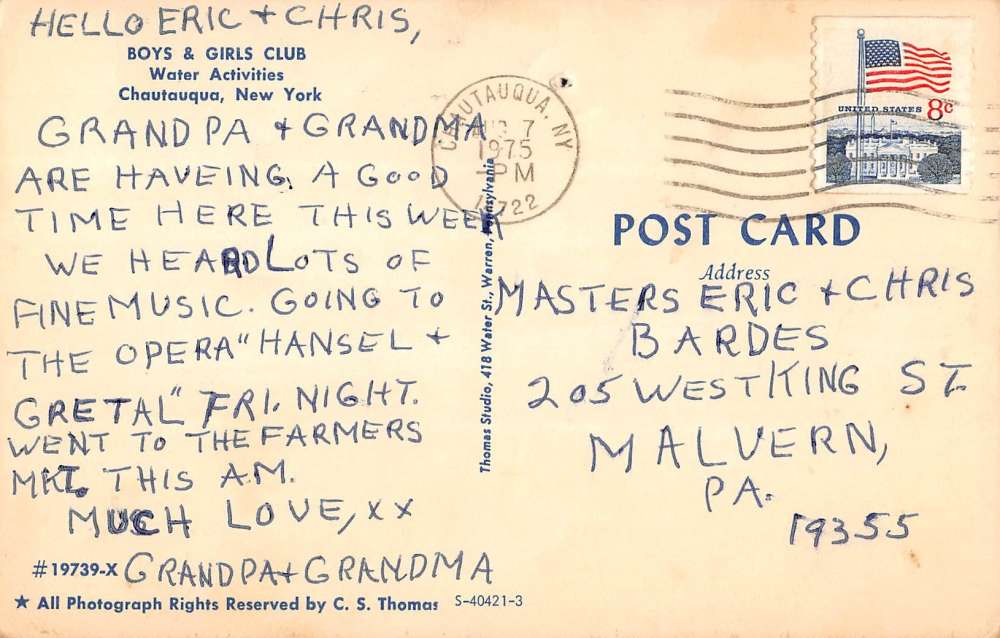 HELLO ERIC + CHRIS,
BOYS & GIRLS CLUB
Water Activities
Chautauqua, New York
GRANDPA + GRANDMA
ARE HAVEING A GOOD
TIME HERE THIS WEEK
WE HEARD LOTS OF
FINE MUSIC. GOING TO
THE OPERA "HANSEL +
GRETAL" FRI. NIGHT.
WENT TO THE FARMERS
MKT. THIS A.M.
MUCH LOVE, XX
GRANDPA + GRANDMA
#19739-X
★ All Photograph Rights Reserved by C. S. Thomas
S-40421-3
Thomas Studio, 418 Water St., Warren, Pennsylvania
CHAUTAUQUA, NY
AUG 7
1975
PM
14722
UNITED STATES 8c
POST CARD
Address
MASTERS ERIC + CHRIS
BARDES
205 WEST KING ST.
MALVERN,
PA.
19355